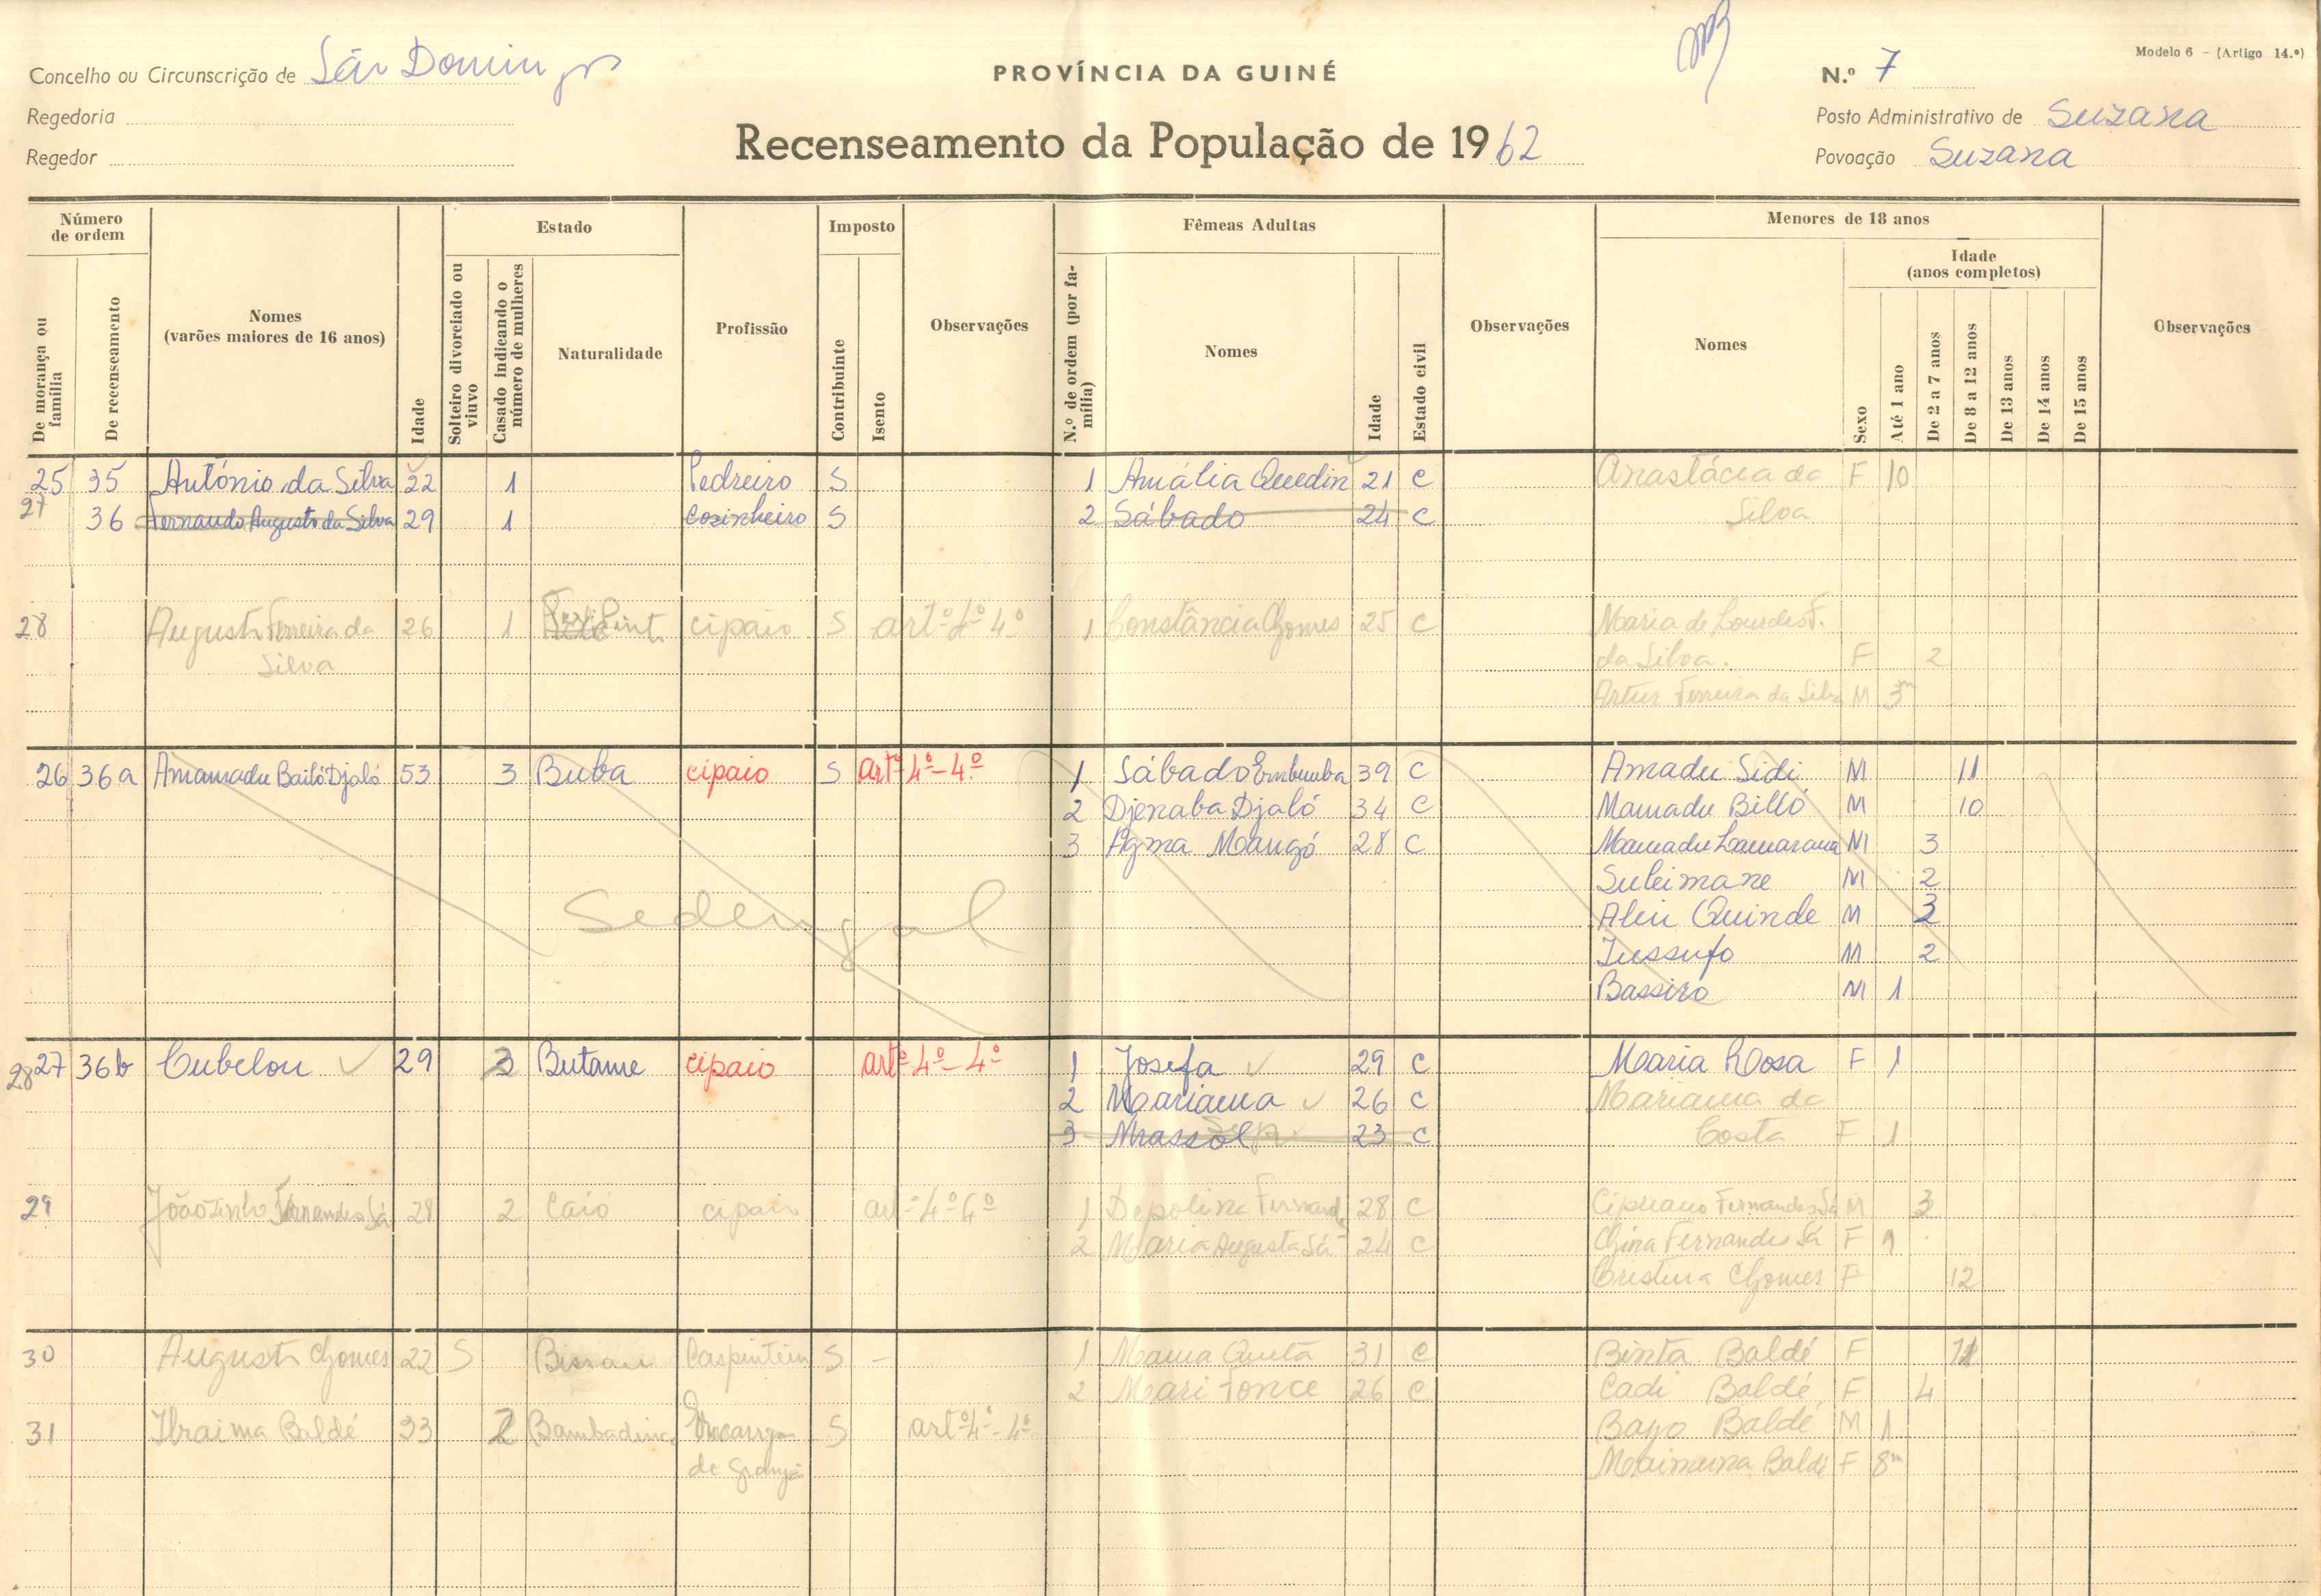 Modelo 6 — (Artigo 14.º)
Concelho ou Circunscrição de São Domingos
PROVÍNCIA DA GUINÉ
N.º 7
Regedoria
Posto Administrativo de Suzana
Regedor
Recenseamento da População de 1962
Povoação Suzana
Número de ordem
Estado
Imposto
Fêmeas Adultas
Menores de 18 anos
Idade (anos completos)
De morança ou família
De recenseamento
Nomes (varões maiores de 16 anos)
Idade
Solteiro divorciado ou viuvo
Casado indicando o número de mulheres
Naturalidade
Profissão
Contribuinte
Isento
Observações
N.º de ordem (por família)
Nomes
Idade
Estado civil
Observações
Nomes
Sexo
Até 1 ano
De 2 a 7 anos
De 8 a 12 anos
De 13 anos
De 14 anos
De 15 anos
Observações
25 35 António da Silva 22 1 Pedreiro S 1 Amália Quedin 21 C Anastácia da F 10
27 36 Fernando Augusto da Silva 29 1 Cozinheiro S 2 Sábado 24 C Silva
28 Augusto Ferreira da 26 1 cipaio S artº 4º 1 Constância Gomes 25 C Maria de Lourdes F.
Silva da Silva. F 2
Artur Ferreira da Silva M 3m
26 36a Amamadu Bailó Djaló 53 3 Buba cipaio S artº 4º-4º 1 Sábado Embumba 39 C Amadu Sidi M 11
2 Djenaba Djaló 34 C Mamadu Billó M 10
3 Agma Mangó 28 C Mamadu Lamarana M 3
Suleimane M 2
Sedengal
Aliu Quinde M 3
Jussufo M 2
Bassiro M 1
28 27 36b Cubelou 29 3 Butame cipaio artº 4º-4º 1 Josefa 29 C Maria Rosa F 1
2 Mariama 26 C Mariama da
3 Massol 23 C Costa F 1
29 Joãozinho Fernandes Sá 28 2 Caió cipaio artº 4º 6º 1 Depolina Fernand 28 C Cipriano Fernandes Sá M 3
2 Maria Augusta Sá 24 C Gina Fernandes Sá F 9
Cristina Gomes F 12
30 Augusto Gomes 22 S Bissau Carpinteiro S - 1 Mama Quetá 31 C Binta Baldé F 11
2 Mari Fonce 26 C Cadi Baldé F 4
31 Ibraima Baldé 33 2 Bambadinca S artº 4º-4º Bayo Baldé M 1
de Granja Maimuna Baldé F 8m